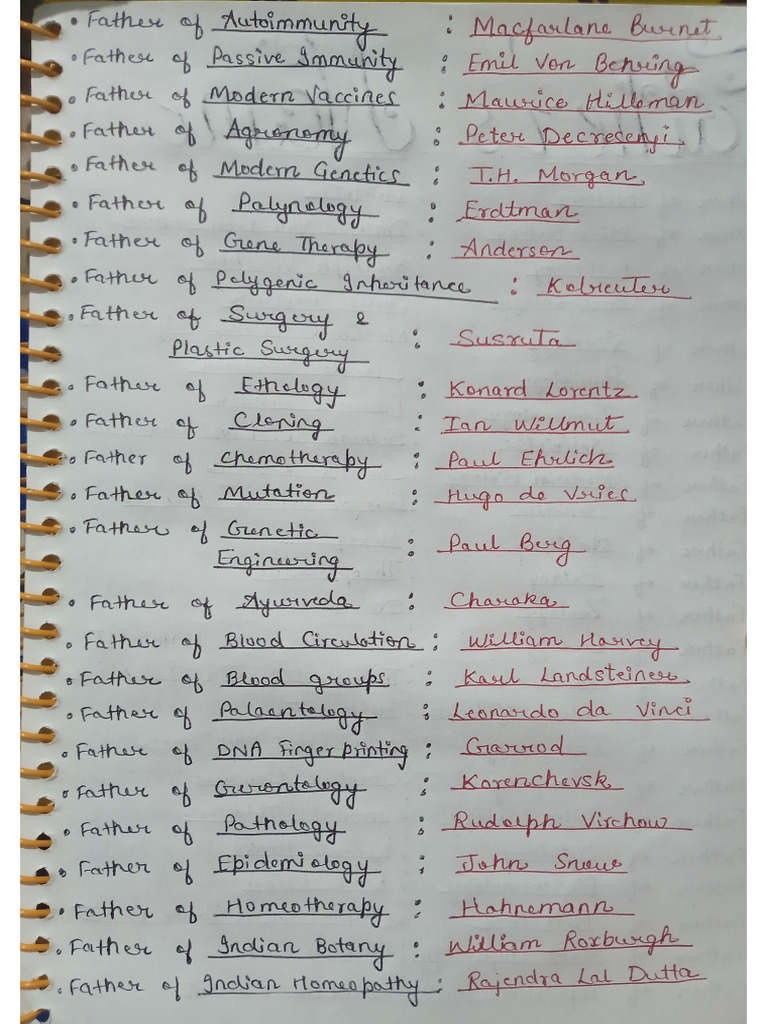 • Father of Autoimmunity : Macfarlane Burnet
• Father of Passive Immunity : Emil Von Behring
• Father of Modern Vaccines : Maurice Hilleman
• Father of Agronomy : Peter Decrescenyi
• Father of Modern Genetics : T.H. Morgan
• Father of Palynology : Erdtman
• Father of Gene Therapy : Anderson
• Father of Polygenic Inheritance : Kolreuter
• Father of Surgery &
Plastic Surgery : Susruta
• Father of Ethology : Konard Lorentz
• Father of Cloning : Ian Willmut
• Father of Chemotherapy : Paul Ehrlich
• Father of Mutation : Hugo de Vries
• Father of Genetic
Engineering : Paul Berg
• Father of Ayurveda : Charaka
• Father of Blood Circulation : William Harvey
• Father of Blood groups : Karl Landsteiner
• Father of Palaentology : Leonardo da Vinci
• Father of DNA Finger printing : Garrod
• Father of Gerontology : Korenchevsk
• Father of Pathology : Rudolph Virchow
• Father of Epidemiology : John Snow
• Father of Homeotherapy : Hahnemann
• Father of Indian Botany : William Roxburgh
• Father of Indian Homeopathy : Rajendra Lal Dutta